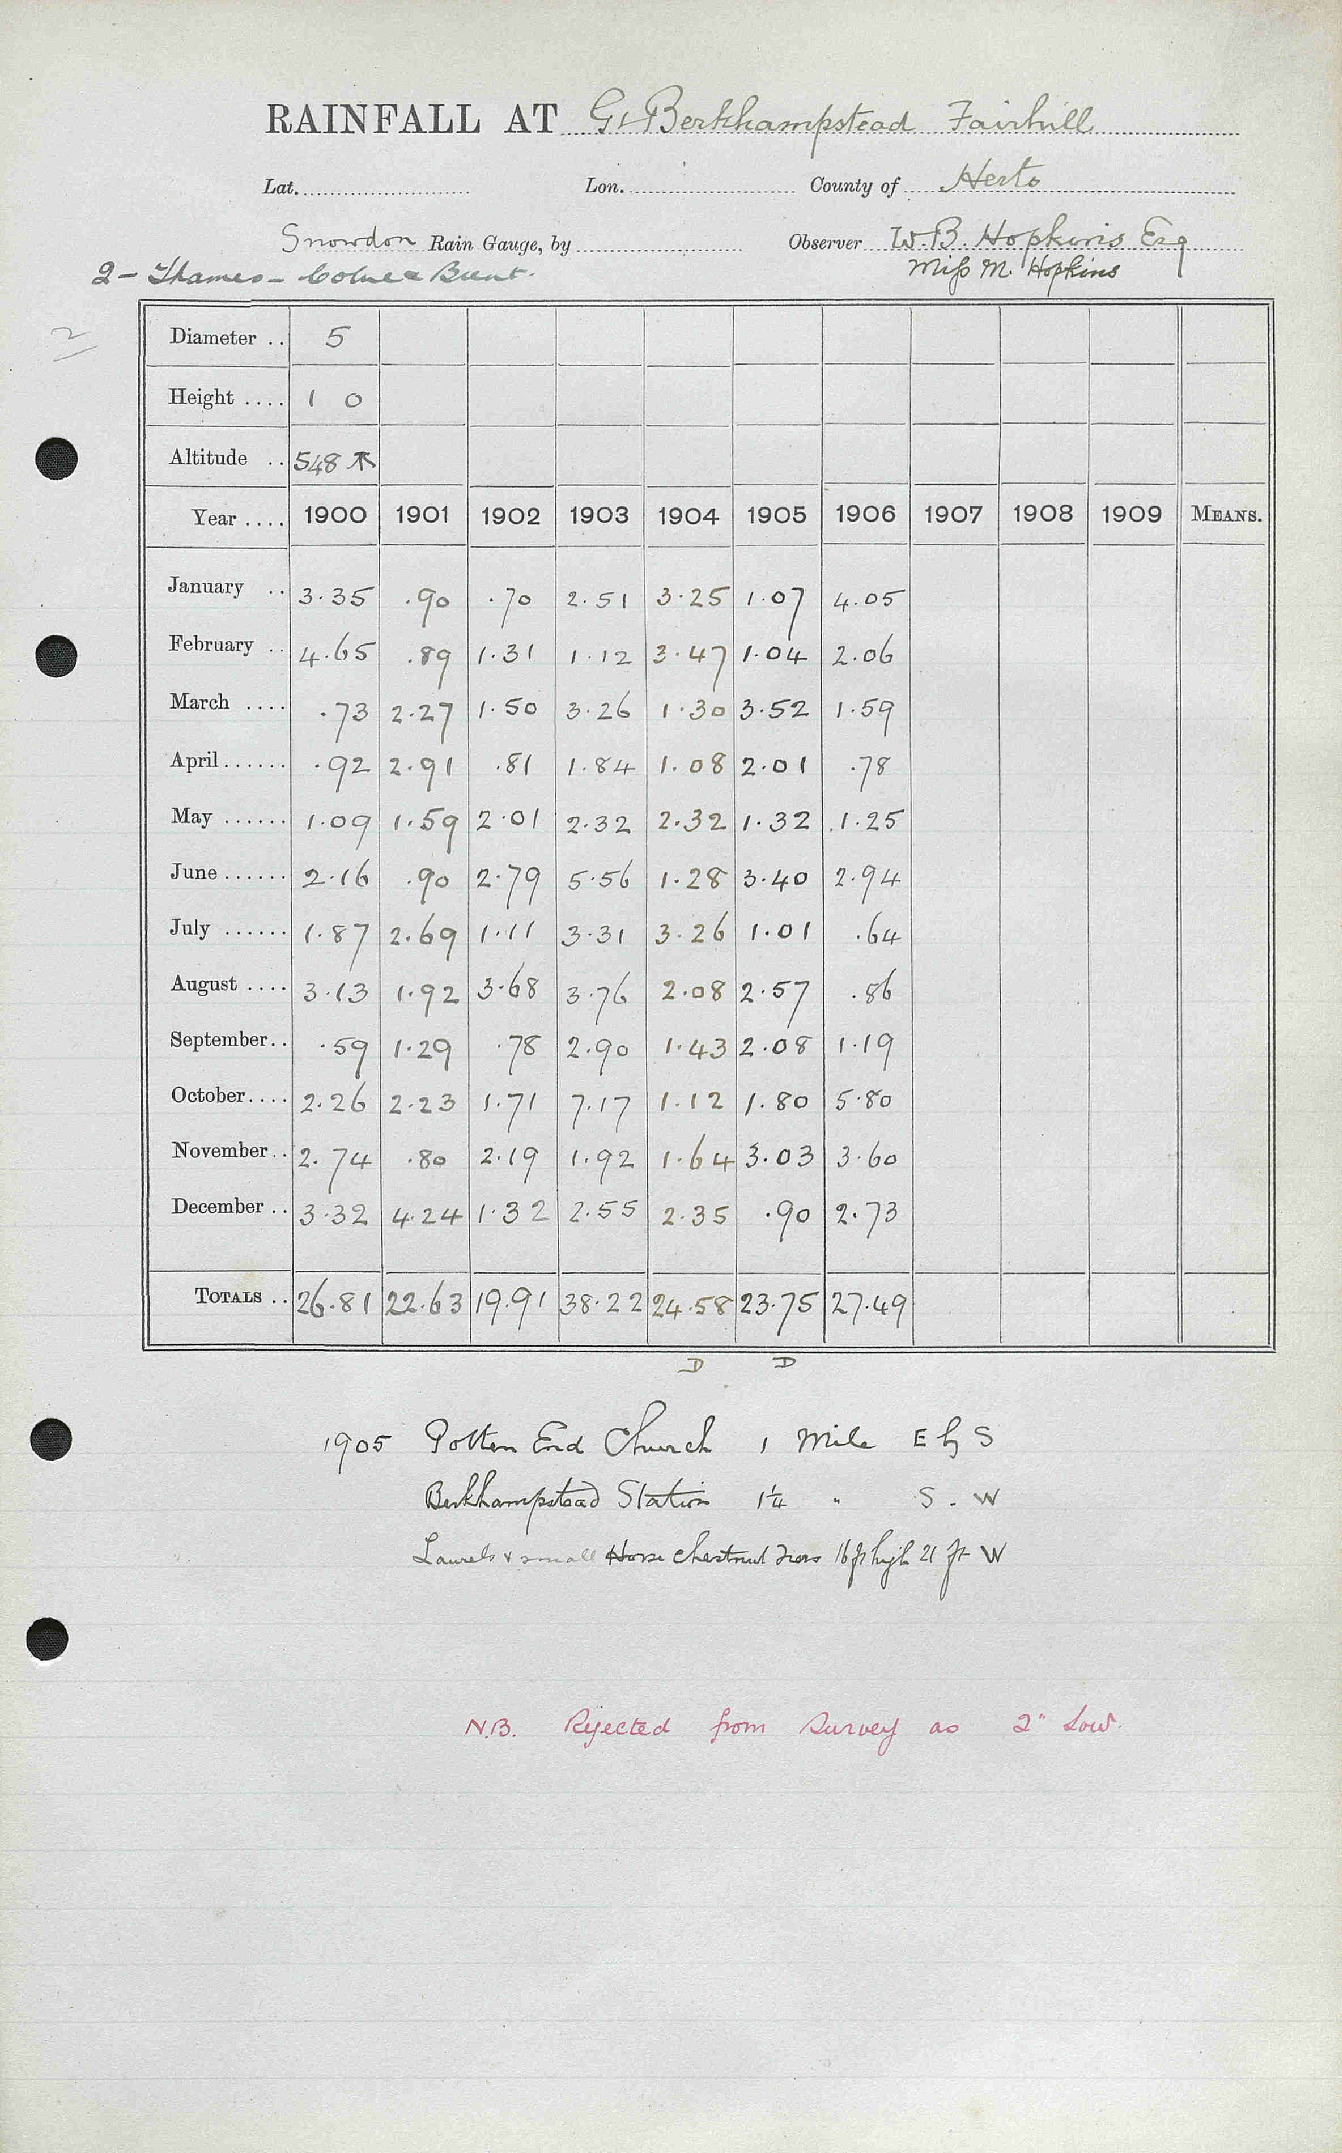 RAINFALL AT Gt Berkhampstead Fairhill
Lat. Lon. County of Herts
Snowdon Rain Gauge, by Observer W.B. Hopkins Esq
2 - Thames - Colne & Brent. Miss M. Hopkins
2
Diameter .. 5
Height .... 1 0
Altitude .. 548
Year .... 1900 1901 1902 1903 1904 1905 1906 1907 1908 1909 MEANS.
January .. 3.35 .90 .70 2.51 3.25 1.07 4.05
February .. 4.65 .89 1.31 1.12 3.47 1.04 2.06
March .... .73 2.27 1.50 3.26 1.30 3.52 1.59
April ...... .92 2.91 .81 1.84 1.08 2.01 .78
May ...... 1.09 1.59 2.01 2.32 2.32 1.32 1.25
June ...... 2.16 .90 2.79 5.56 1.28 3.40 2.94
July ...... 1.87 2.69 1.11 3.31 3.26 1.01 .64
August .... 3.13 1.92 3.68 3.76 2.08 2.57 .86
September .. .59 1.29 .78 2.90 1.43 2.08 1.19
October .... 2.26 2.23 1.71 7.17 1.12 1.80 5.80
November .. 2.74 .80 2.19 1.92 1.64 3.03 3.60
December .. 3.32 4.24 1.32 2.55 2.35 .90 2.73
TOTALS .. 26.81 22.63 19.91 38.22 24.58 23.75 27.49
D D
1905 Potten End Church 1 Mile E by S
Berkhampstead Station 1¼ " S. W
Laurels & small Horse Chestnut Trees 16 ft high 21 ft W
N.B. Rejected from Survey as 2" low.